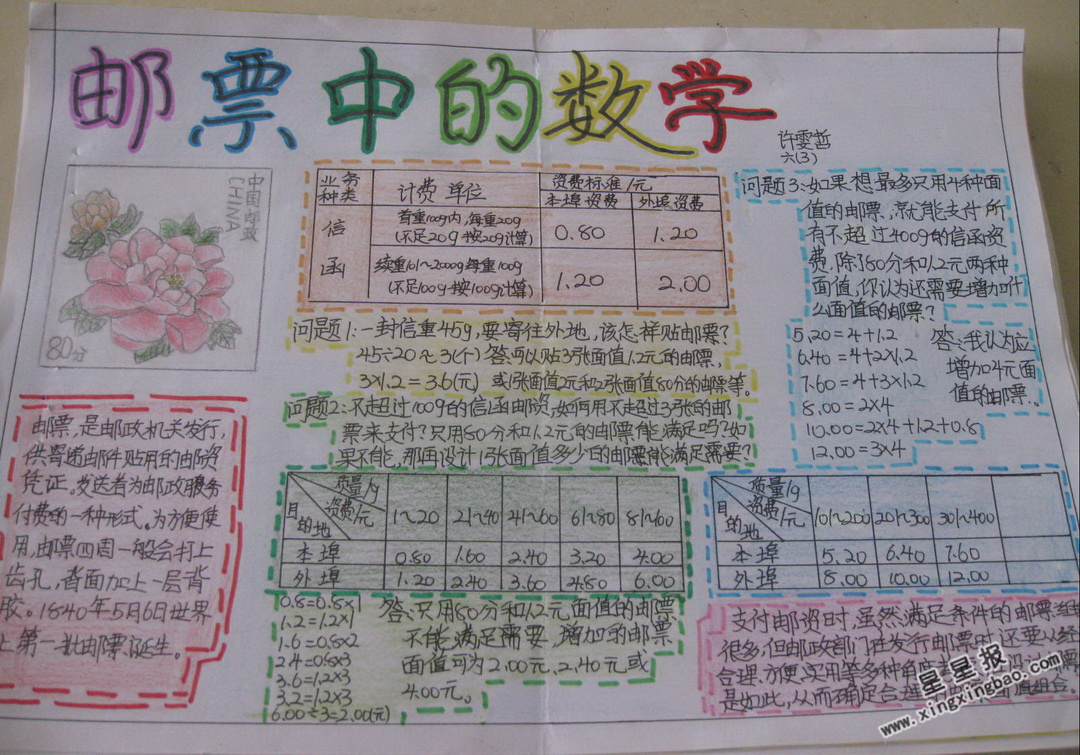 邮票中的数学
许雯哲
六(3)
中国邮政
CHINA
80分
业务种类 计费单位 资费标准/元
本埠资费 外埠资费
信函
首重100g内,每重20g
(不足20g按20g计算)
0.80 1.20
续重101~2000g每重100g
(不足100g按100g计算)
1.20 2.00
问题1:一封信重45g,要寄往外地,该怎样贴邮票?
45÷20≈3(个) 答:可以贴3张面值1.2元的邮票,
3×1.2=3.6(元) 或1张面值2元和2张面值80分的邮票等。
问题2:不超过100g的信函邮资,如何用不超过3张的邮
票来支付?只用80分和1.2元的邮票能满足吗?如
果不能,那再设计1张面值多少的邮票能满足需要?
质量/g 资费/元 目的地 1~20 21~40 41~60 61~80 81~100
本埠 0.80 1.60 2.40 3.20 4.00
外埠 1.20 2.40 3.60 4.80 6.00
0.8=0.8×1
1.2=1.2×1
1.6=0.8×2
2.4=0.8×3
3.6=1.2×3
3.2=1.2×3
6.00÷3=2.00(元)
答:只用80分和1.2元面值的邮票
不能满足需要,增加的邮票
面值可为2.00元、2.40元或
4.00元。
问题3:如果想最多只用4种面
值的邮票,就能支付所
有不超过400g的信函资
费,除了80分和1.2元两种
面值,你认为还需要增加什
么面值的邮票?
5.20=4+1.2
6.40=4+2×1.2
7.60=4+3×1.2
8.00=2×4
10.00=2×4+1.2+0.8
12.00=3×4
答:我认为应
增加4元面
值的邮票.
质量/g 资费/元 目的地 101~200 201~300 301~400
本埠 5.20 6.40 7.60
外埠 8.00 10.00 12.00
邮票,是邮政机关发行,
供寄递邮件贴用的邮资
凭证。发送者为邮政服务
付费的一种形式。为方便使
用,邮票四周一般会打上
齿孔,背面加上一层背
胶。1840年5月6日世界
上第一批邮票诞生。
支付邮资时,虽然满足条件的邮票组
很多,但邮政部门在发行邮票时,还要从经
合理、方便、实用等多种角度
是如此,从而确定合 面值组合。
星星报
www.xingxingbao.com